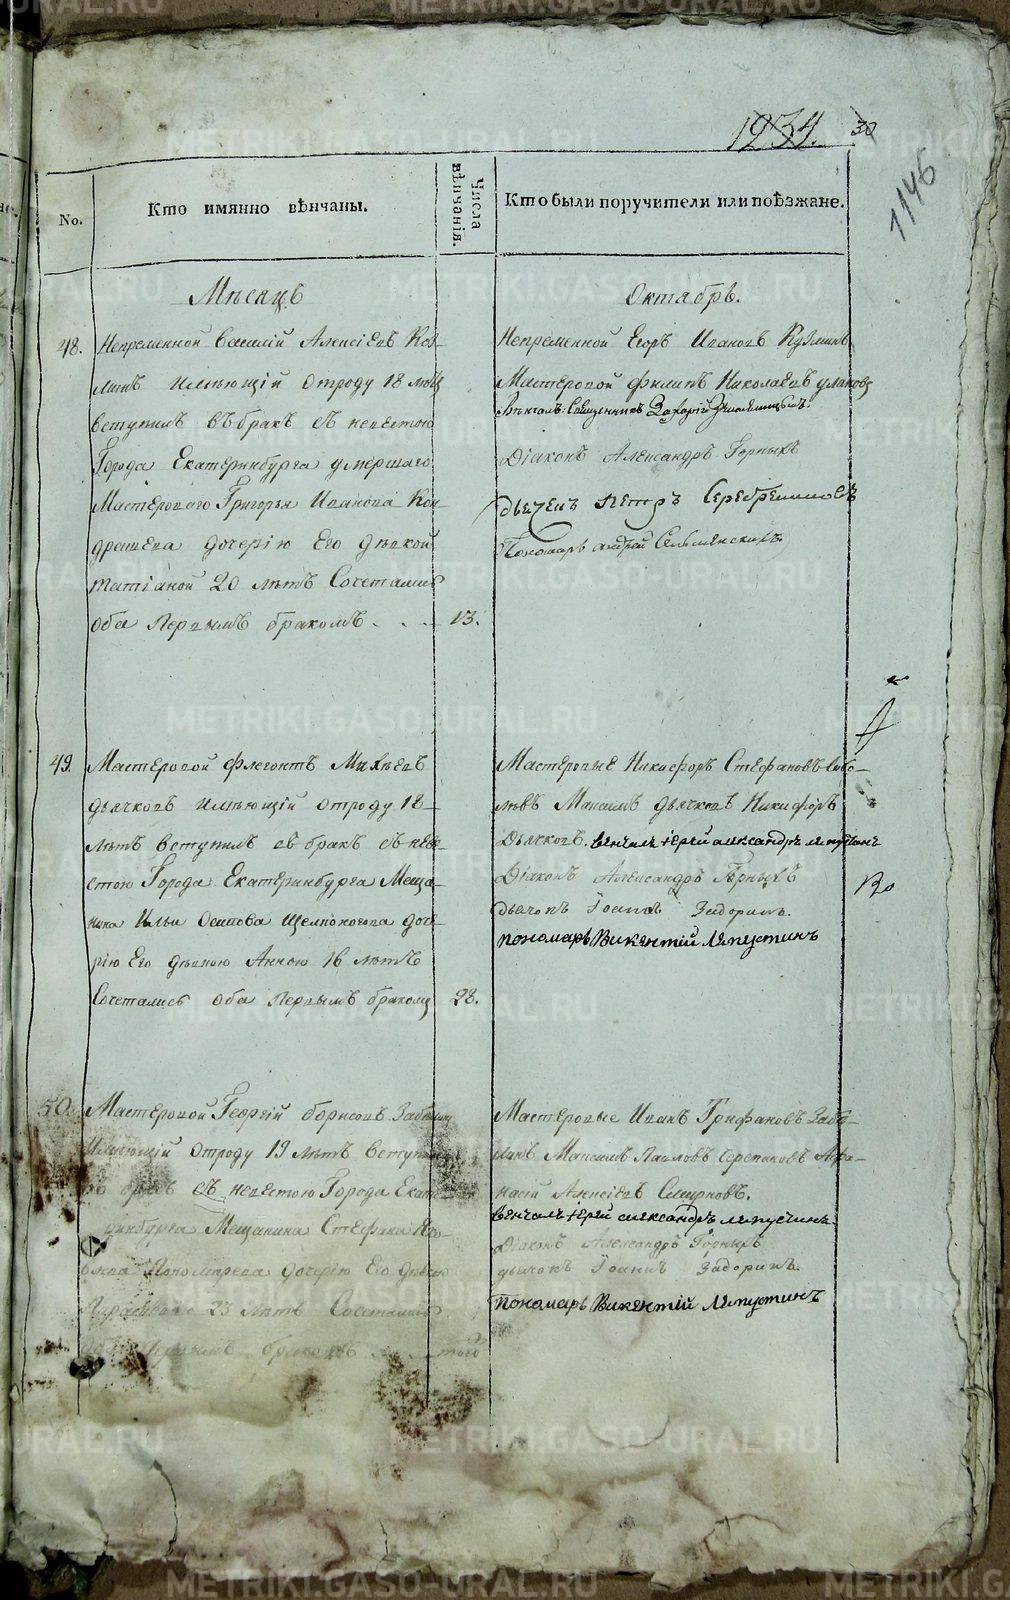 1934. 30
1146
No.
Кто имянно вѣнчаны.
Числа вѣнчанія.
Кто были поручители или поѣзжане.
Мѣсяцъ
Октябрь.
48. Непременной Василій Алексіевъ Коз-
минъ имѣющій отроду 18 лѣтъ
вступилъ въ бракъ съ невестою
Города Екатеринбурга умершаго
Мастероваго Григорья Иванова Кон-
драшева дочерію Его дѣвкой
Татіаной 20 лѣтъ Сочетались
оба Первымъ бракомъ. . . . 13.
Непременной Егоръ Ивановъ Кузминъ
Мастеровой Филипъ Николаевъ
Вѣнчалъ: Священникъ Захарій
Діаконъ Александръ Горныхъ
дьячекъ Петръ Серебренниковъ
Пономарь андрей
49. Мастеровой Флегонтъ Михѣевъ
дьячковъ имѣющій отроду 18
лѣтъ вступилъ въ бракъ съ неве-
стою Города Екатеринбурга Меща-
нина Ильи Осипова Щелконогова доч-
рію Его дѣвкою Анною 16 лѣтъ
Сочетались оба Первымъ бракомъ 28.
Мастеровые Никифоръ Стефановъ Собо-
левъ Максимъ дьячковъ Никифоръ
Дьячковъ. венчалъ іерей александръ ляпустинъ
Діаконъ Александръ Горныхъ
дьячокъ Іоаннъ Задоринъ.
пономарь Викентій Ляпустинъ
50. Мастеровой Георгій борисовъ
Имѣющій отроду 19 лѣтъ вступилъ
въ бракъ съ невестою Города Екате-
ринбурга Мещанина Стефана
Пономарева дочерію Его дѣвкою
23 лѣтъ Сочетались
оба Первымъ бракомъ того
Мастеровые Иванъ Трифановъ
Максимъ Павловъ Афа-
насій Алексіевъ Смирновъ.
венчалъ іерей александръ ляпустинъ
Діаконъ Александръ Горныхъ
дьячокъ Іоаннъ Задоринъ.
пономарь Викентій Ляпустинъ
METRIKI.GASO-URAL.RU